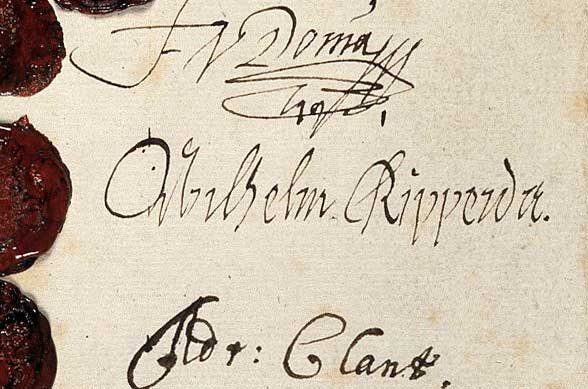 F V Donia
Wilhelm. Ripperda.
Adr: Clant.